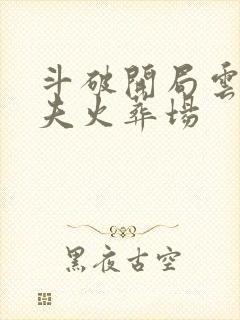 斗破開局雲
夫火葬場
黑夜古空